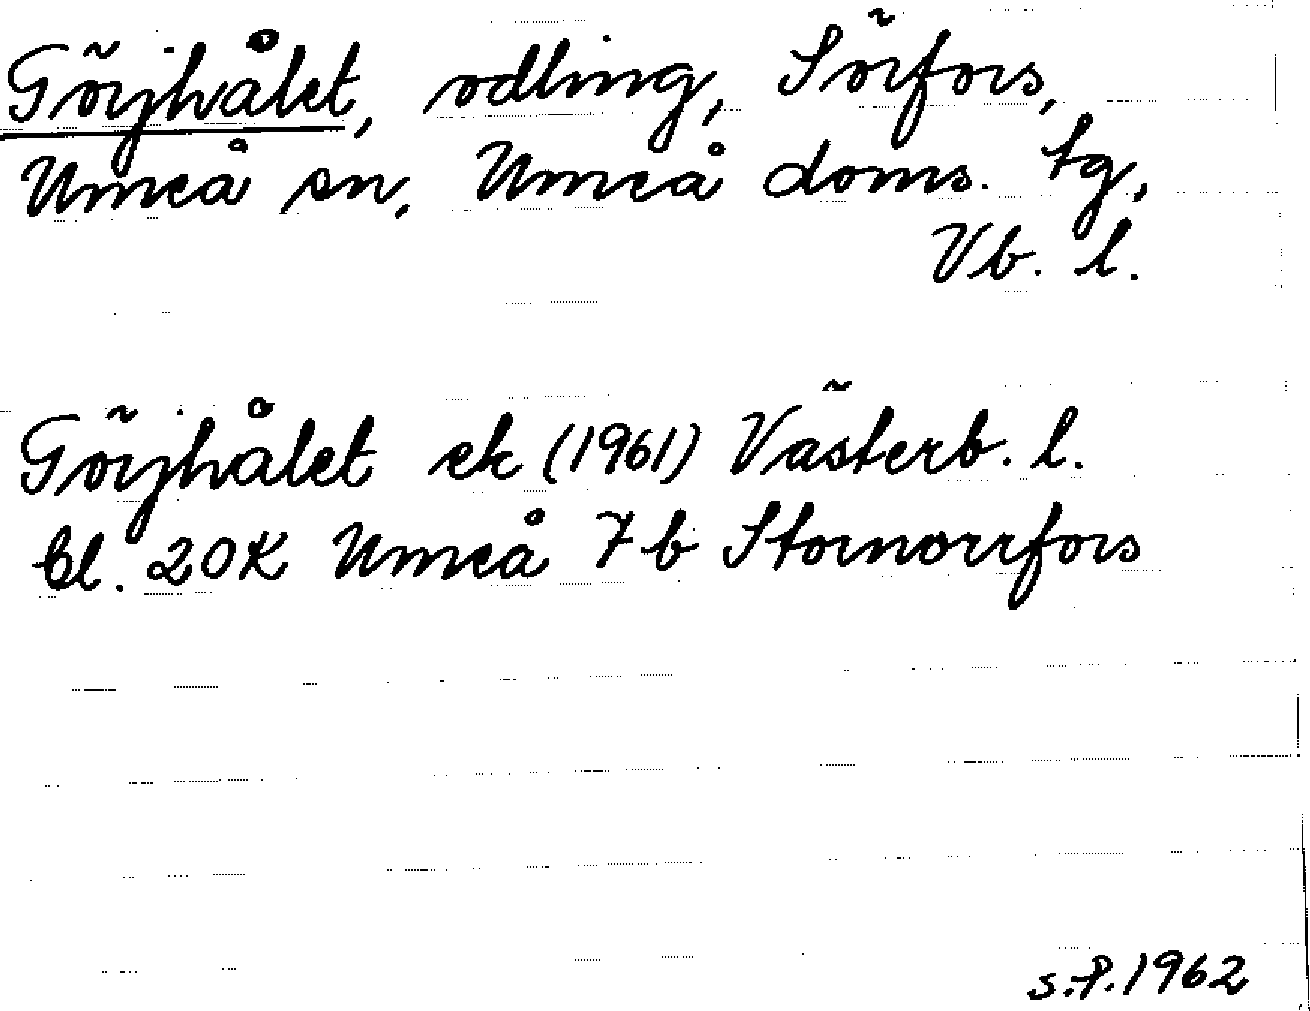 Görjhålet, odling, Sörfors,
Umeå sn, Umeå doms. tg,
Vb. l.
Görjhålet ek (1961) Västerb. l.
bl. 20K Umeå 7b Stornorrfors
s.f. 1962